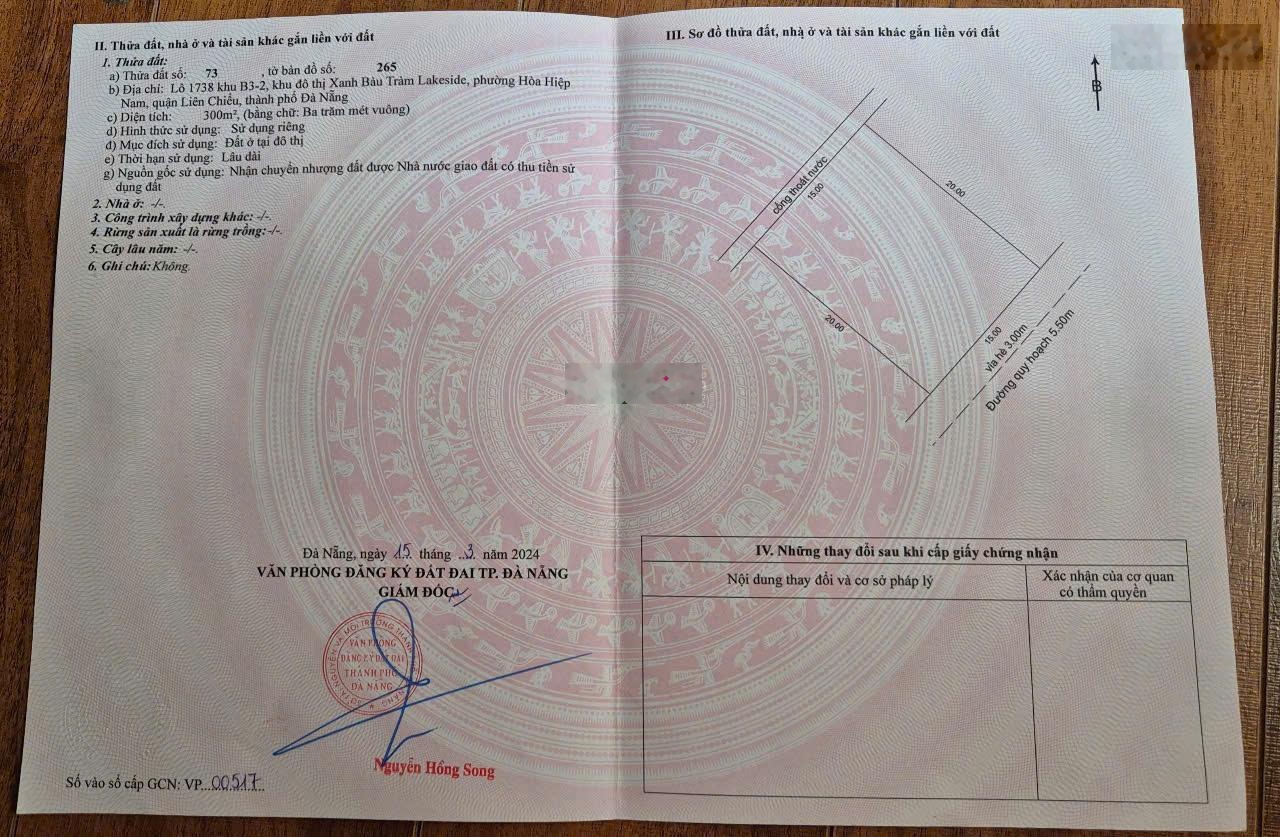 II. Thửa đất, nhà ở và tài sản khác gắn liền với đất
1. Thửa đất:
a) Thửa đất số: 73 , tờ bản đồ số: 265
b) Địa chỉ: Lô 1738 khu B3-2, khu đô thị Xanh Bàu Tràm Lakeside, phường Hòa Hiệp
Nam, quận Liên Chiểu, thành phố Đà Nẵng
c) Diện tích: 300m², (bằng chữ: Ba trăm mét vuông)
d) Hình thức sử dụng: Sử dụng riêng
đ) Mục đích sử dụng: Đất ở tại đô thị
e) Thời hạn sử dụng: Lâu dài
g) Nguồn gốc sử dụng: Nhận chuyển nhượng đất được Nhà nước giao đất có thu tiền sử
dụng đất
2. Nhà ở: -/-.
3. Công trình xây dựng khác: -/-.
4. Rừng sản xuất là rừng trồng: -/-.
5. Cây lâu năm: -/-.
6. Ghi chú: Không.
Đà Nẵng, ngày 15 tháng 3 năm 2024
VĂN PHÒNG ĐĂNG KÝ ĐẤT ĐAI TP. ĐÀ NẴNG
GIÁM ĐỐC
VĂN PHÒNG
ĐĂNG KÝ ĐẤT ĐAI
THÀNH PHỐ
ĐÀ NẴNG
Nguyễn Hồng Song
Số vào sổ cấp GCN: VP...00517...
III. Sơ đồ thửa đất, nhà ở và tài sản khác gắn liền với đất
B
cống thoát nước
15.00
20.00
20.00
15.00
vỉa hè 3.00m
Đường quy hoạch 5.50m
IV. Những thay đổi sau khi cấp giấy chứng nhận
Nội dung thay đổi và cơ sở pháp lý
Xác nhận của cơ quan
có thẩm quyền